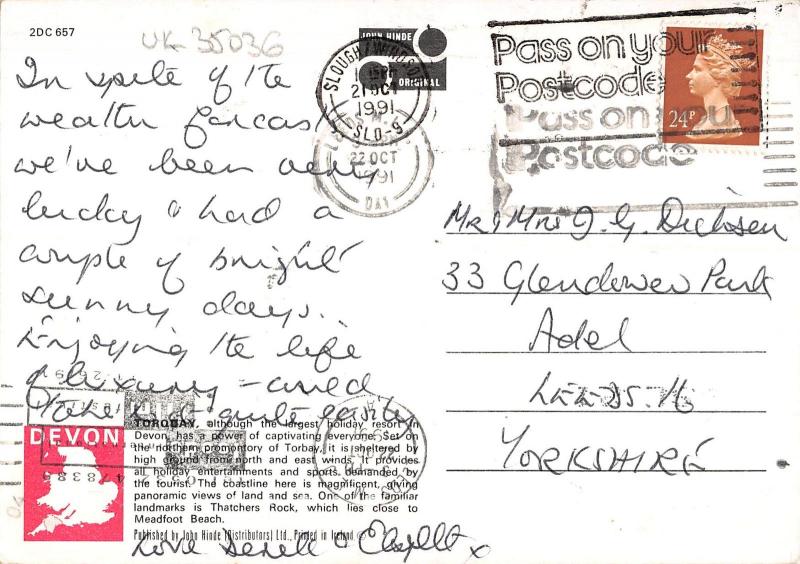 2DC 657
UK-35036
JOHN HINDE
ORIGINAL
SLOUGH / WINDSOR
21 OCT
1991
SLO-9
22 OCT
1991
DAY
Pass on your
Postcode
Pass on your
Postcode
24P
In spite of the
weather forcas
we've been very
lucky & had a
couple of bright
sunny days.
Enjoying the life
of luxury - and
take it quite easily
Mr & Mrs J. G. Dickson
33 Glendower Park
Adel
LEEDS 16
YORKSHIRE
DEVON
TORQUAY, although the largest holiday resort in
Devon, has a power of captivating everyone. Set on
the northern promontory of Torbay, it is sheltered by
high ground from north and east winds. It provides
all holiday entertainments and sports demanded by
the tourist. The coastline here is magnificent, giving
panoramic views of land and sea. One of the familiar
landmarks is Thatchers Rock, which lies close to
Meadfoot Beach.
Published by John Hinde (Distributors) Ltd., Printed in Ireland ©
478389
Love
x